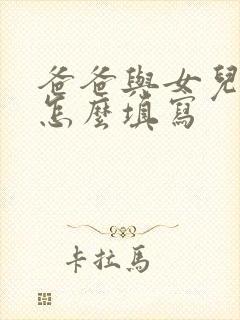 爸爸與女兒
怎麼填寫
卡拉馬